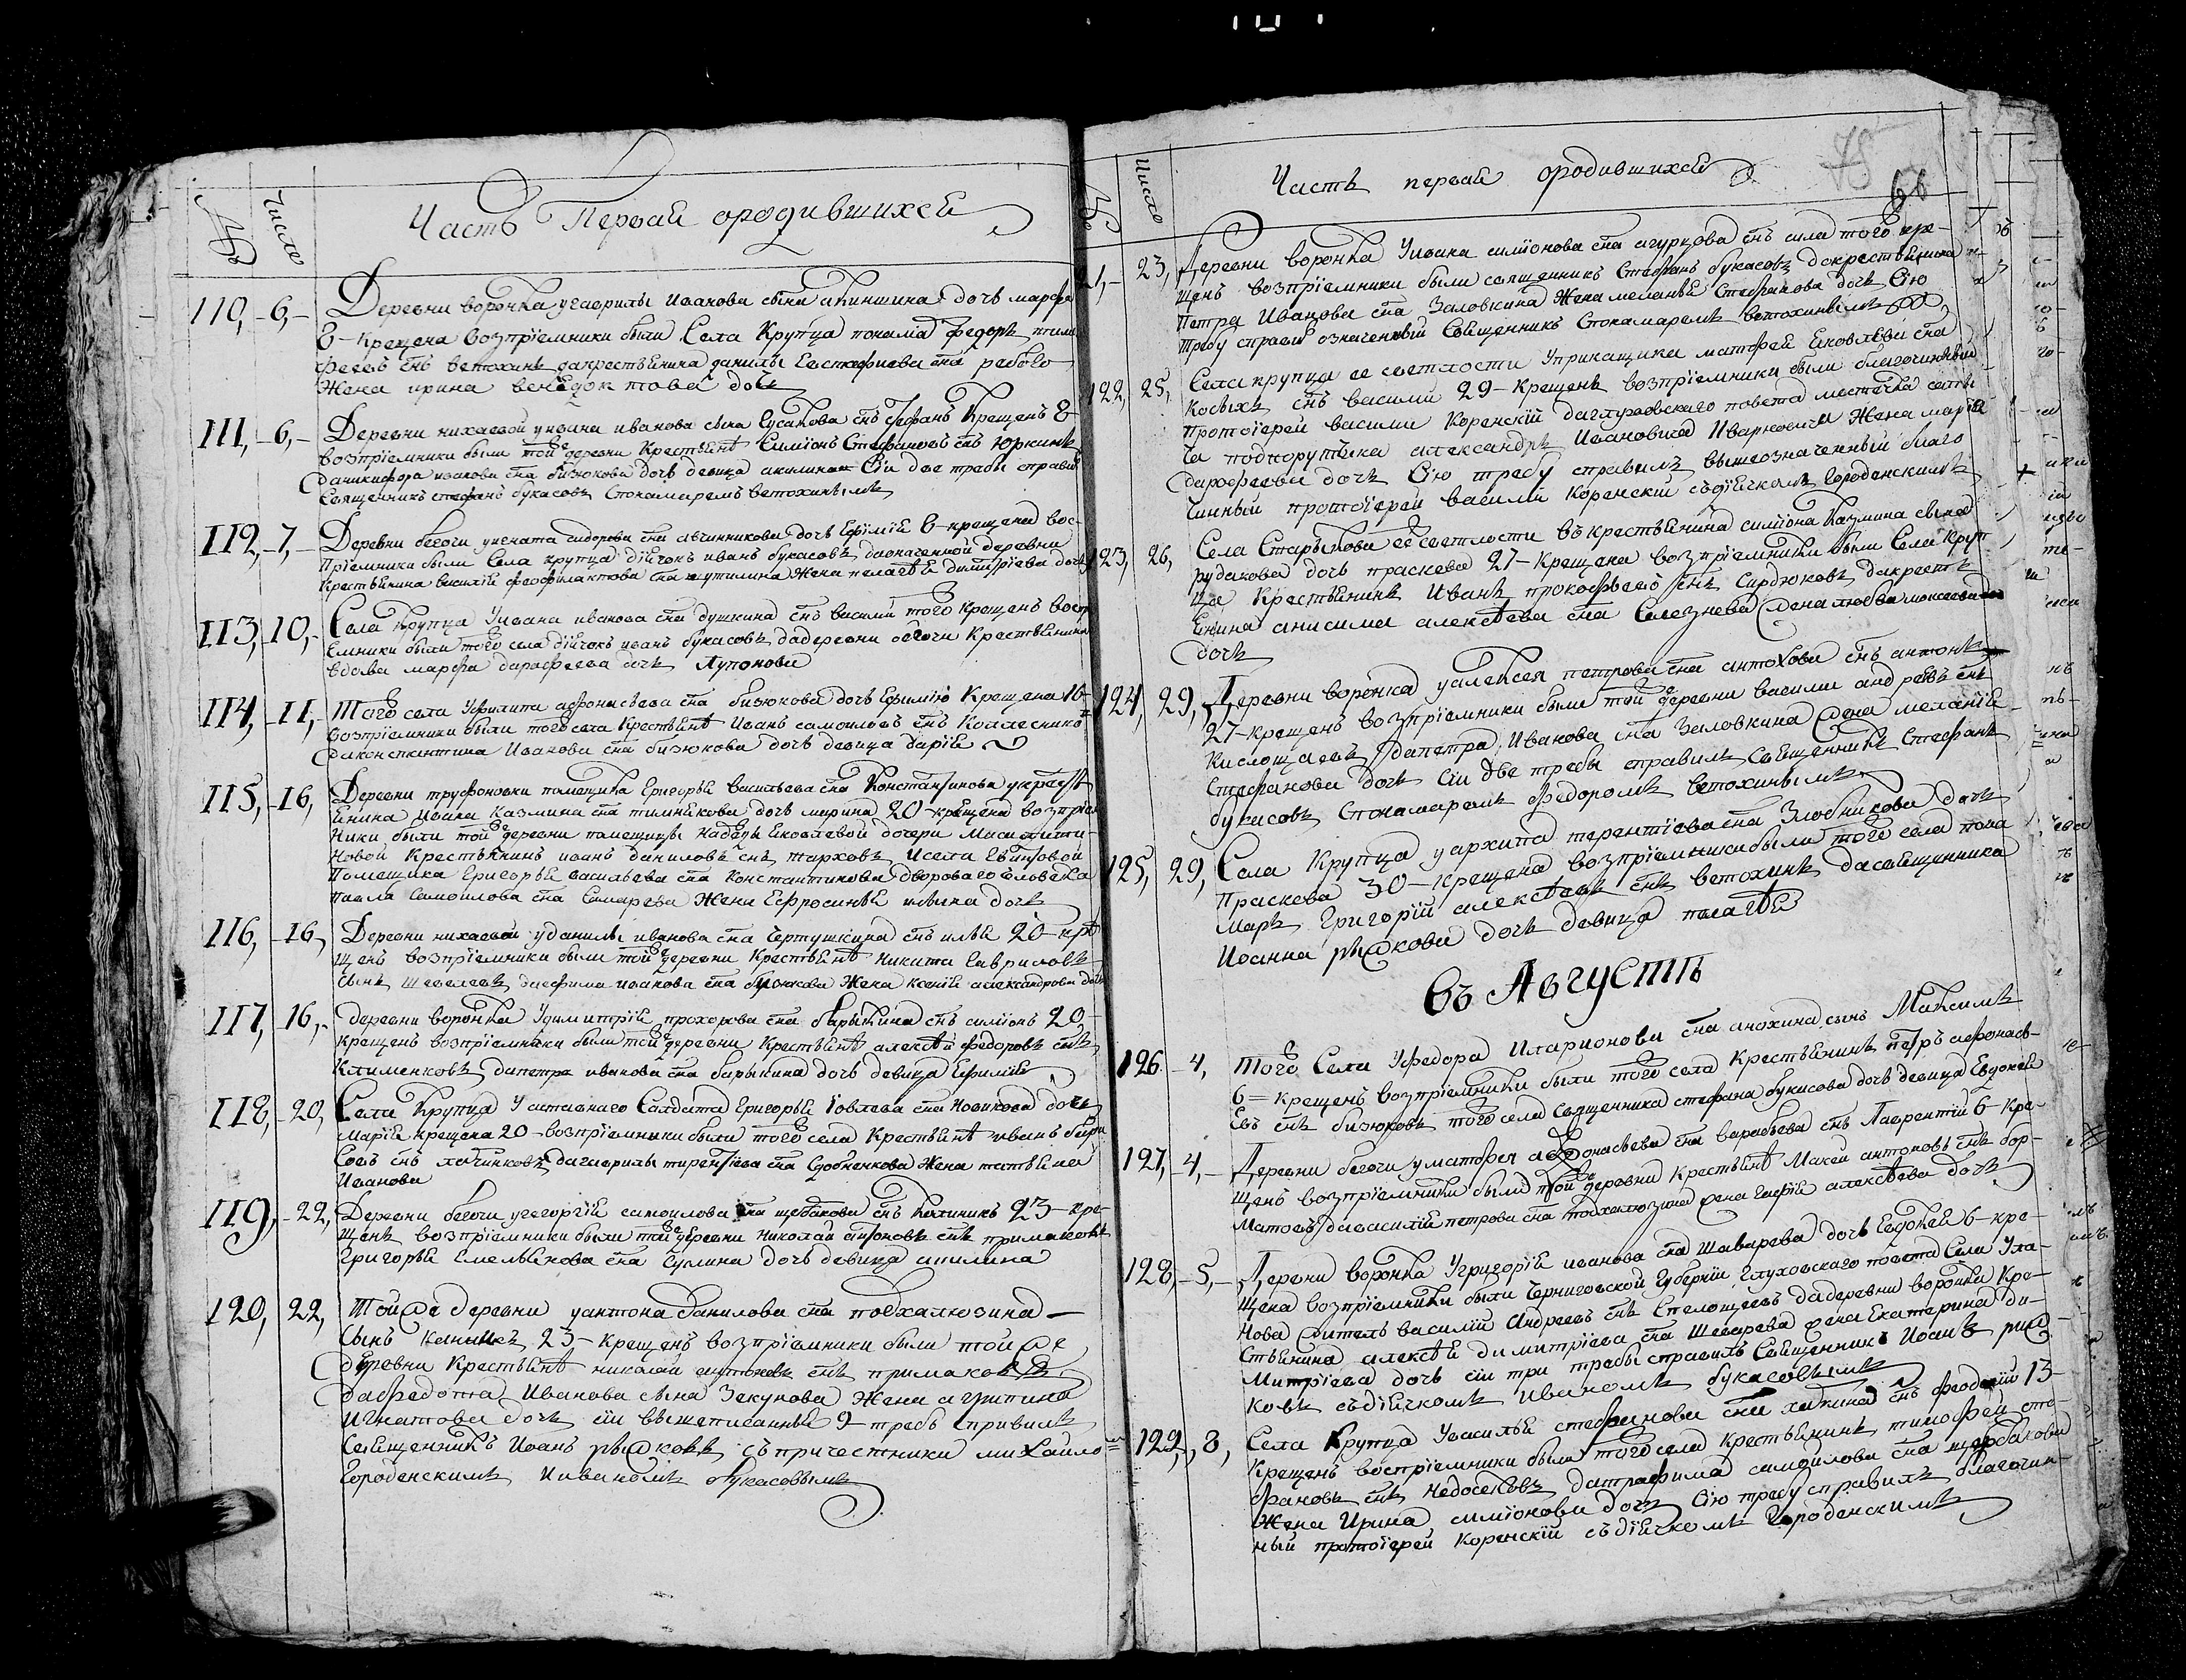 №
Число
Часть Первая ородившихся
110, 6, Деревни воронка угаврилы Иванова сына акиншина дочь марфа
8 - Крещена возпріемники были Села Крупца понама федоръ тимо
феевъ снъ ветохинъ дакрестьянина данилы Евстафиева сна
Жена ирина дочь
111, 6, Деревни нихаевой уивана иванова сына Гусакова снъ стефанъ Крещенъ 8
возпріемники были тойже деревни Крестьянъ Симіонъ Стефановъ снъ Юркинъ
даникифора иванова сна бизюкова дочь девица акилина Сіи две требы справилъ
Священникъ стефанъ букасовъ Спонамаремъ ветохинымъ
112, 7, Деревни бегочи уигната сидорова сна авчинникова дочь Ефімія 8 - крещена вос
Пріемники были Села крупца діячокъ иванъ букасовъ даозначенной деревни
Крестьянина василія феофилактова сна шутилина Жена пелагея димитріева дочь
113, 10, Села Крупца Уивана иванова сна душкина снъ василій того крещенъ воспрі
Емники были тогоже села діячокъ иванъ букасовъ дадеревни бегочи Крестьянина
вдова марфа дарофеева дочь Лупонова
114, 11, Тогоже села Уфилипа афонасьева сна бизюкова дочь Ефимію Крещена 16
возпріемники были тогоже села Крестьянъ Иванъ самоиловъ снъ Колесниковъ
даконстантина Иванова сна бизюкова дочь девица дарія
115, 16, Деревни труфоновки помещика Григорья васильева сна Константинова укрестья
янина ивана Казмина сна тимникова дочь марина 20 - крещена возпріем
Ники были тойже деревни помещицы надежды Яковлевой дочери
новой Крестьянинъ иванъ даниловъ снъ жарховъ исела
Помещика Григорья васильева сна Константинова двороваго человека
Павла Самоилова сна Самарева Жена Ефросинья ивана дочь
116, 16, Деревни нихаевой уданилы иванова сна Чертушкина снъ илья 20 - кре
щенъ возпріемники были тойже деревни Крестьянъ Никита Гавриловъ
сынъ Шевелевъ даефима иванова сна бузюкова Жена Ксенія александрова дочь
117, 16, деревни воронка Удимитрія прохорова сна барыкина снъ симіонъ 20
крещенъ возпріемники были тойже деревни Крестьянъ алексей федоровъ снъ
Клименковъ дапетра иванова сна барыкина дочь девица Ефимія
118, 20, Села Крупца Уаставнаго Салдата Григорья Іовлева сна Новикова дочь
марія крещена 20 - возпріемники были тогоже села Крестьянъ иванъ
совъ снъ дагаврилы тирентіева сна Сдобникова Жена татьяна
Иванова
119, 22, Деревни бегочи угеоргія самоилова сна щебакова снъ Калиникъ 23 - кре
щенъ возпріемники были тойже деревни николай антоновъ снъ примаковъ
Григорья Емельянова сна Гулина дочь девица акилина
120, 22, Тойже деревни уантона данилова сна подхалюзина
Сынъ 23 - крещенъ возпріемники были тойже
деревни Крестьянъ николай антоновъ снъ примаковъ
дафедота Иванова сына Зекунова Жена агрипина
Игнатова дочь сіи вышеписанныя 9 требъ справилъ
Священникъ Иоанъ рыжковъ съпричестники михайло
Городенскимъ Ииваномъ букасовымъ
№
Число
Часть первая ородившихся
66
21, 23, Деревни воронка Уивана симіонова сна агурцова снъ сила того кре
щенъ возпріемники были священникъ Стефанъ букасовъ дакрестьянина
Петра Иванова сна Заловкина Жена меланья Стефанова дочь Сію
Требу справилъ означенный Священникъ Спонамаремъ ветохинымъ
122, 25, Села крупца ее светлости Уприкащика матфея Яковлева сна
Косыхъ снъ василій 29 - Крещенъ возпріемники были благочинный
протоіерей василій Коренскій даглуховскаго повета местечка
подпорутчика александръ Ивановича Жена марія
дарофеева дочь Сію требу справилъ вышеозначенный благо
чинный протоіерей василій Коренскій съдіячкомъ Городенскимъ
123, 26, Села Старыкова ее светлости въкрестьянина симіона Казмина сына
рудакова дочь праскева 27 - Крещена возпріемники были Села Круп
ца Крестьянинъ Иванъ прокофьевъ снъ Сирдюковъ дакресть
янина анисима алексеева сна Селезнева жена любва моисеева
дочь
124, 29, Деревни воронка уалексея петрова сна антохова снъ антонъ
27 - крещенъ возпріемники были тойже деревни василій андреевъ снъ
Кислощаевъ дапетра Иванова сна Заловкина жена меланія
Стефанова дочь сіи две требы справилъ Священникъ Стефанъ
букасовъ Спонамаремъ федоромъ ветохинымъ
125, 29, Села Крупца уархипа терентіева сна Злобникова дочь
Праскева 30 - крещена возпріемники были тогоже села пона
марь Григорій алексеевъ снъ ветохинъ дасвященника
Иоанна рыжкова дочь девица пелагея
въ Августѣ
126 4, тогоже Села Уфедора Иларионова сна анохина сынъ Максимъ
6 = крещенъ возпріемники были тогоже села Крестьянинъ петръ афонась
евъ снъ бизюковъ тогоже села Священника стефана букасова дочь девица Евдокея
127, 4, Деревни бегочи уматфея афонасьева сна варабьева снъ Лаврентій 6 - кре
щенъ возпріемники были тойже деревни Крестьянъ Макей антоновъ снъ бор
матовъ давасилія петрова сна подхалюзина жена Гафія алексеева дочь
128, 5, Деревни воронка Угригорія иванова сна Шаварева дочь Евдокея 6 - кре
щена возпріемники были Черниговской Губерніи Глуховскаго повета Села Ула
нова житель василій андреевъ снъ дадеревни воронка Кре
стьянина алексея димитріева сна Шеварева жена Екатерина ди
митріева дочь сіи три требы справилъ Священникъ Иоанъ рыж
ковъ съдіячкомъ иваномъ букасовымъ
129, 8, Села Крупца Увасилья стефанова сна хакина снъ феодосій 13
Крещенъ воспріемники были тогоже села крестьянинъ тимофей сте
фановъ снъ недосековъ датрафима самоилова сна щербакова
Жена Ирина симіонова дочь Сію требу справилъ благочин
ный протоіерей Коренскій съдіячкомъ Городенскимъ